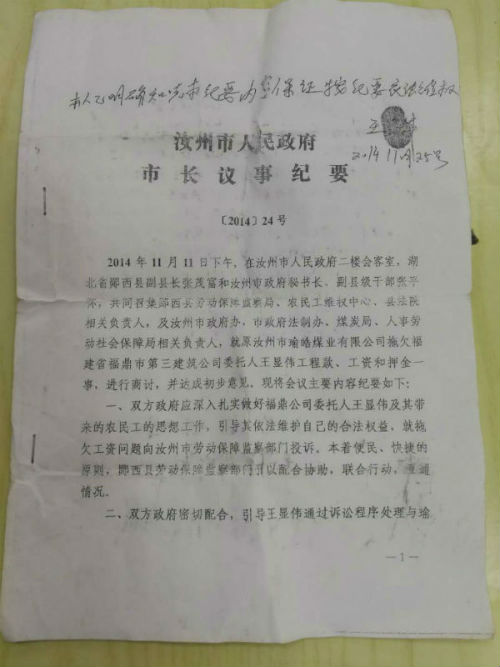 本人已明确知晓本纪要内容保证按纪要依法维权
王
2014 11月25号
汝州市人民政府
市长议事纪要
〔2014〕24号
2014年11月11日下午，在汝州市人民政府二楼会客室，湖
北省郧西县副县长张茂富和汝州市政府秘书长、副县级干部张平
怀，共同召集郧西县劳动保障监察局、农民工维权中心、县法院
相关负责人，及汝州市政府办、市政府法制办、煤炭局、人事劳
动社会保障局相关负责人，就原汝州市瑜皓煤业有限公司拖欠福
建省福鼎市第三建筑公司委托人王显伟工程款、工资和押金一
事，进行商讨，并达成初步意见。现将会议主要内容纪要如下：
一、双方政府应深入扎实做好福鼎公司委托人王显伟及其带
来的农民工的思想工作，引导其依法维护自己的合法权益，就拖
欠工资问题向汝州市劳动保障监察部门投诉。本着便民、快捷的
原则，郧西县劳动保障监察部门予以配合协助，联合行动，互通
情况。
二、双方政府密切配合，引导王显伟通过诉讼程序处理与瑜
—1—